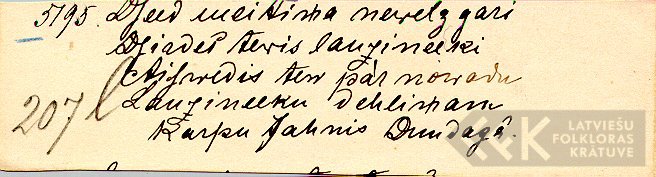 5795. Dseed meitiņa newelz gari
Dsirdes tewis lauzineeki
Aiswedis tew pār nowadu
Lauzineeku dehliņam
207
Karpu Jahnis Dundagā.
LATVIEŠU
FOLKLORAS
KRĀTUVE